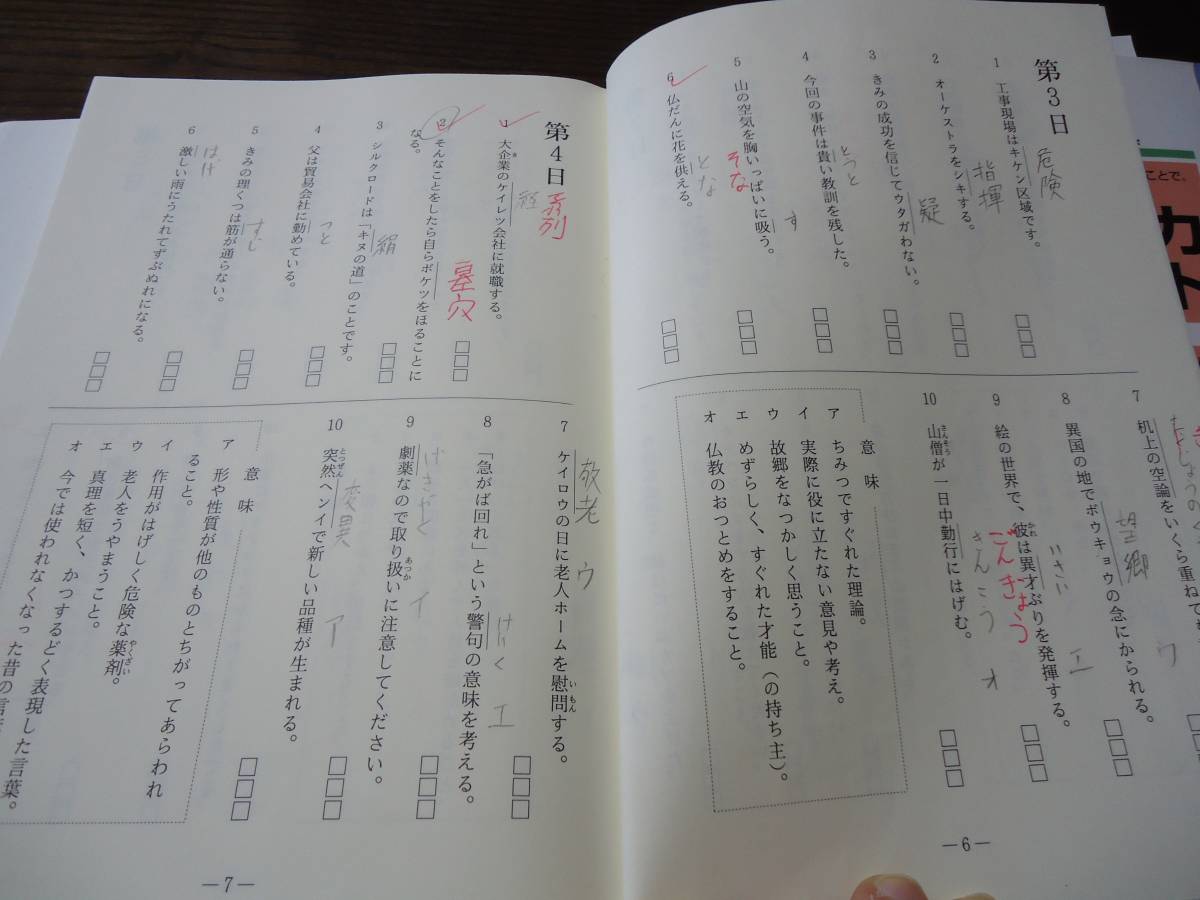 第3日
1 工事現場はキケン区域です。
危険
2 オーケストラをシキする。
指揮
3 きみの成功を信じてウタガわない。
疑
4 今回の事件は貴い教訓を残した。
とうと
5 山の空気を胸いっぱいに吸う。
す
6 仏だんに花を供える。
とな
そな
7 机上の空論をいくら重ねても
8 異国の地でボウキョウの念にかられる。
望郷
ウ
9 絵の世界で、彼は異才ぶりを発揮する。
かれ
いさい
エ
10 山僧が一日中勤行にはげむ。
さんそう
きんこう
オ
ごんぎょう
意味
ア ちみつですぐれた理論。
イ 実際に役に立たない意見や考え。
ウ 故郷をなつかしく思うこと。
エ めずらしく、すぐれた才能(の持ち主)。
オ 仏教のおつとめをすること。
—6—
第4日
1 大企業のケイレツ会社に就職する。
き
経
系列
2 そんなことをしたら自らボケツをほることに
なる。
墓穴
3 シルクロードは「キヌの道」のことです。
絹
4 父は貿易会社に勤めている。
つと
5 きみの理くつは筋が通らない。
すじ
6 激しい雨にうたれてずぶぬれになる。
はげ
7 ケイロウの日に老人ホームを慰問する。
いもん
敬老
ウ
8 「急がば回れ」という警句の意味を考える。
けいく
エ
9 劇薬なので取り扱いに注意してください。
あつか
げきやく
イ
10 突然ヘンイで新しい品種が生まれる。
とつぜん
変異
ア
意味
ア 形や性質が他のものとちがってあらわれ
ること。
イ 作用がはげしく危険な薬剤。
やくざい
ウ 老人をうやまうこと。
エ 真理を短く、かつするどく表現した言葉。
オ 今では使われなくなった昔の言
—7—
ことで。
カ
ト